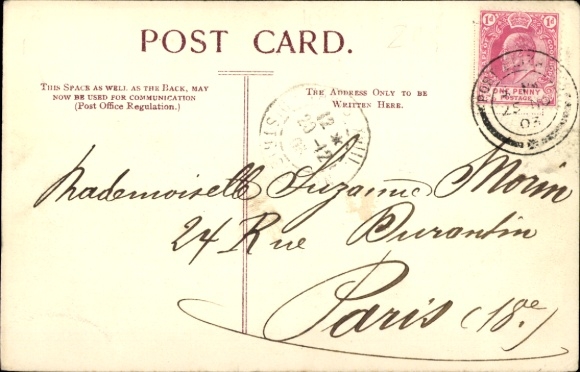 POST CARD.
THIS SPACE AS WELL AS THE BACK, MAY
NOW BE USED FOR COMMUNICATION
(Post Office Regulation.)
THE ADDRESS ONLY TO BE
WRITTEN HERE.
1d 1d
ONE PENNY
POSTAGE
12
20 -12
Mademoiselle Suzanne Morin
24 Rue Durantin
Paris (18e)